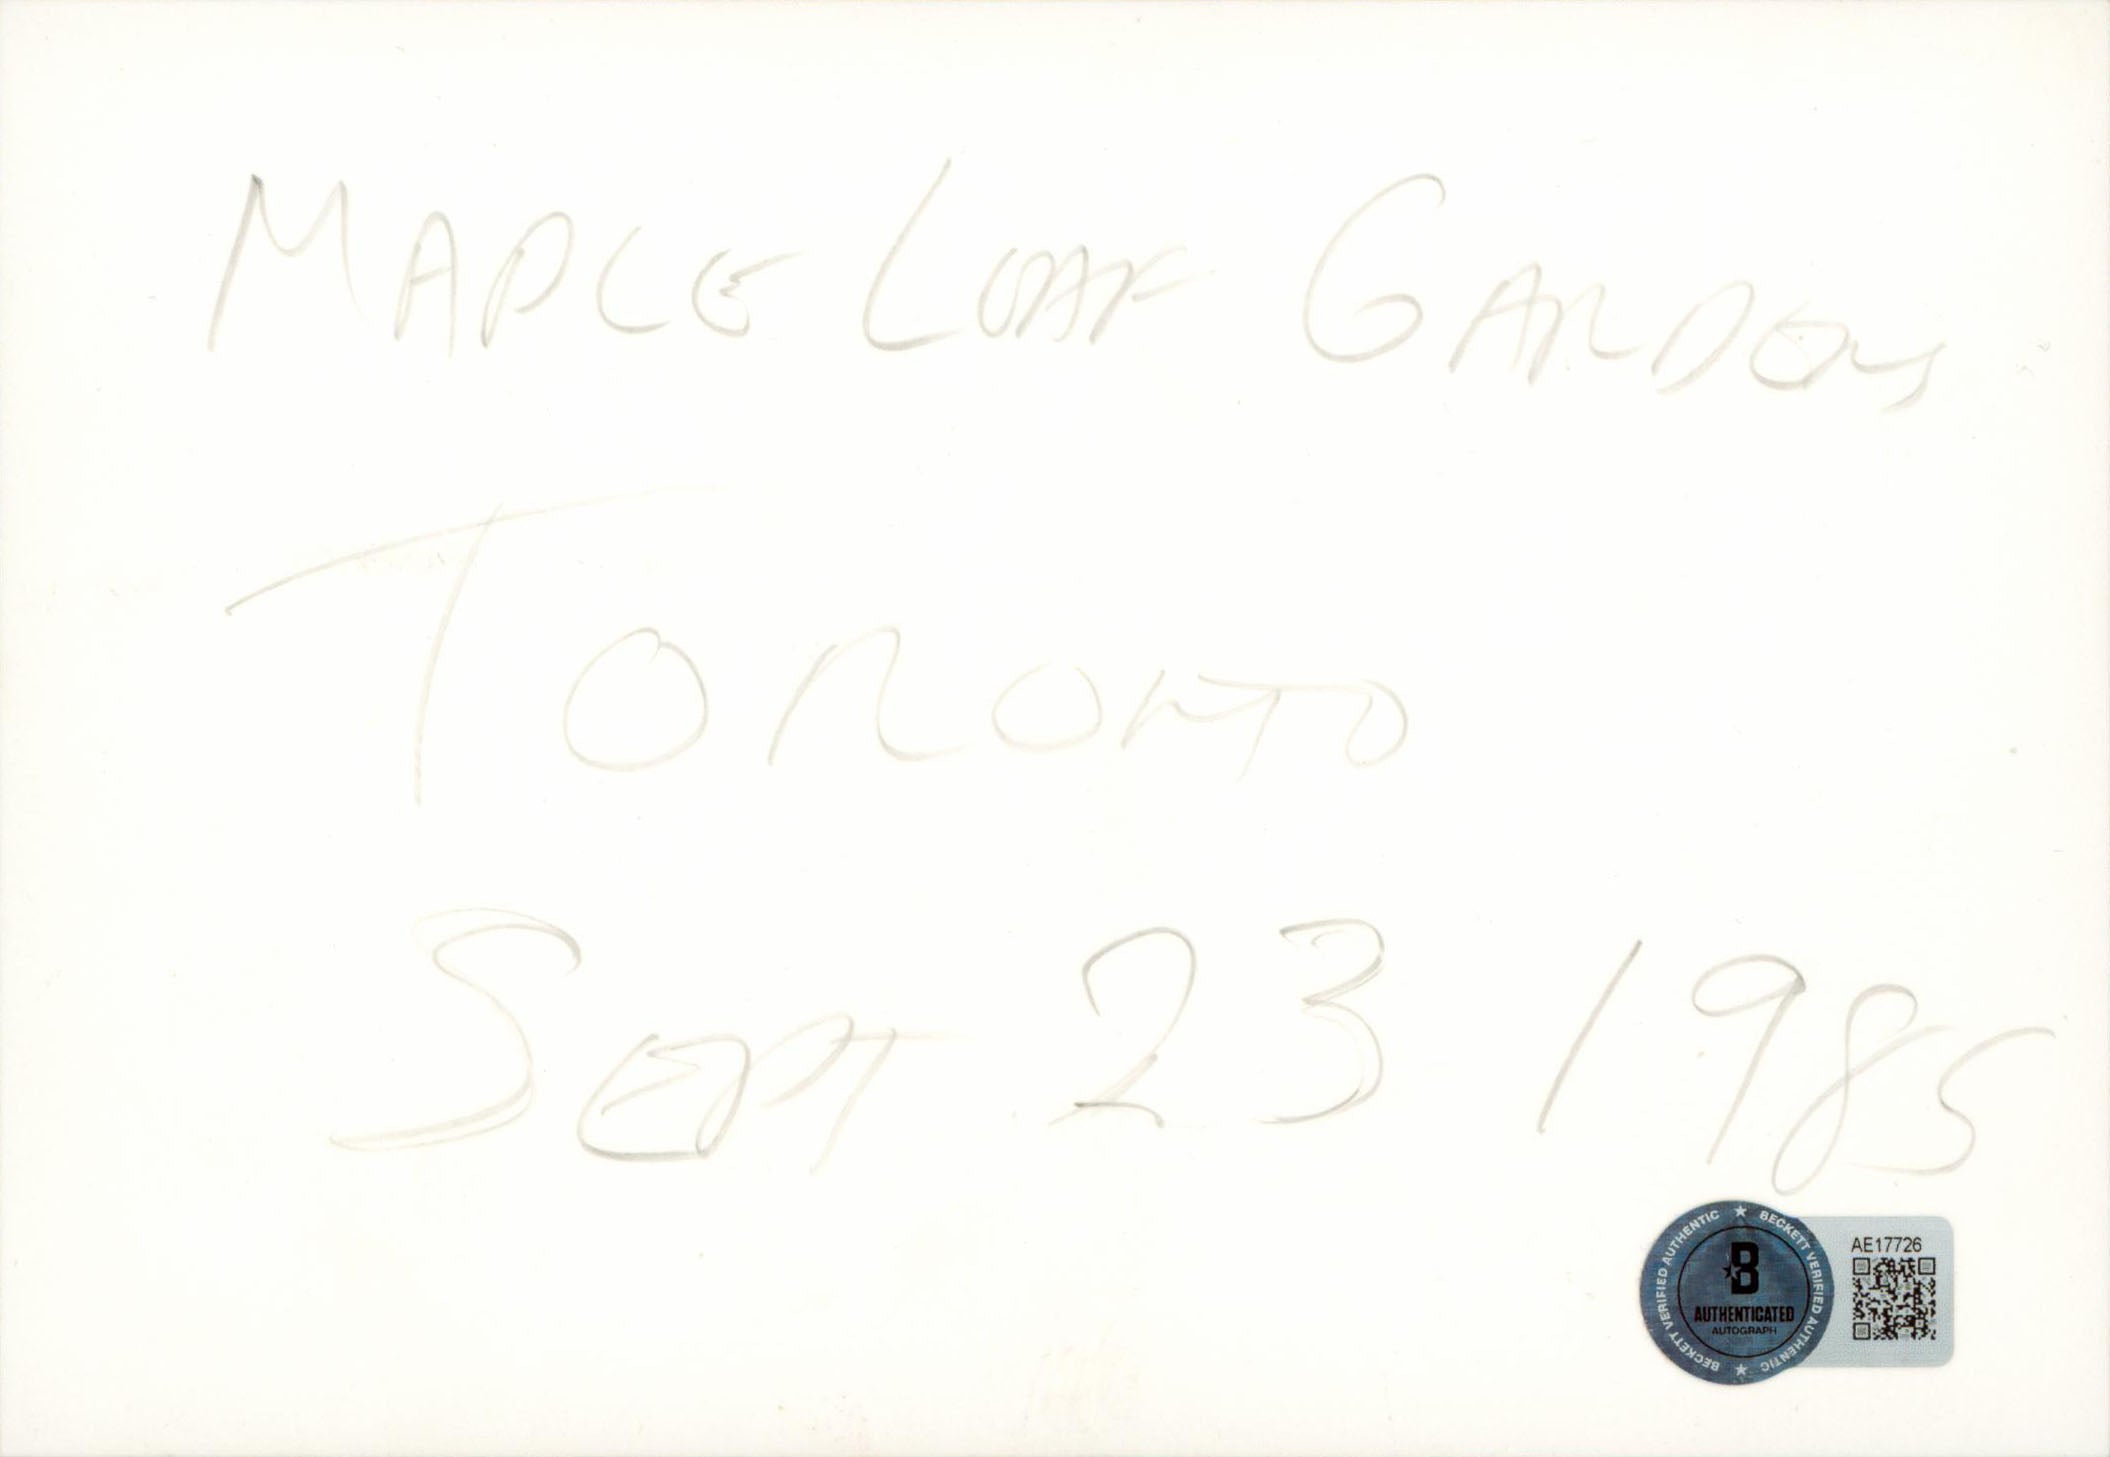 MAPLE LEAF GARDENS
TORONTO
SEPT 23 1985
BECKETT VERIFIED AUTHENTIC ★ BECKETT VERIFIED AUTHENTIC ★
B
AUTHENTICATED
AUTOGRAPH
AE17726